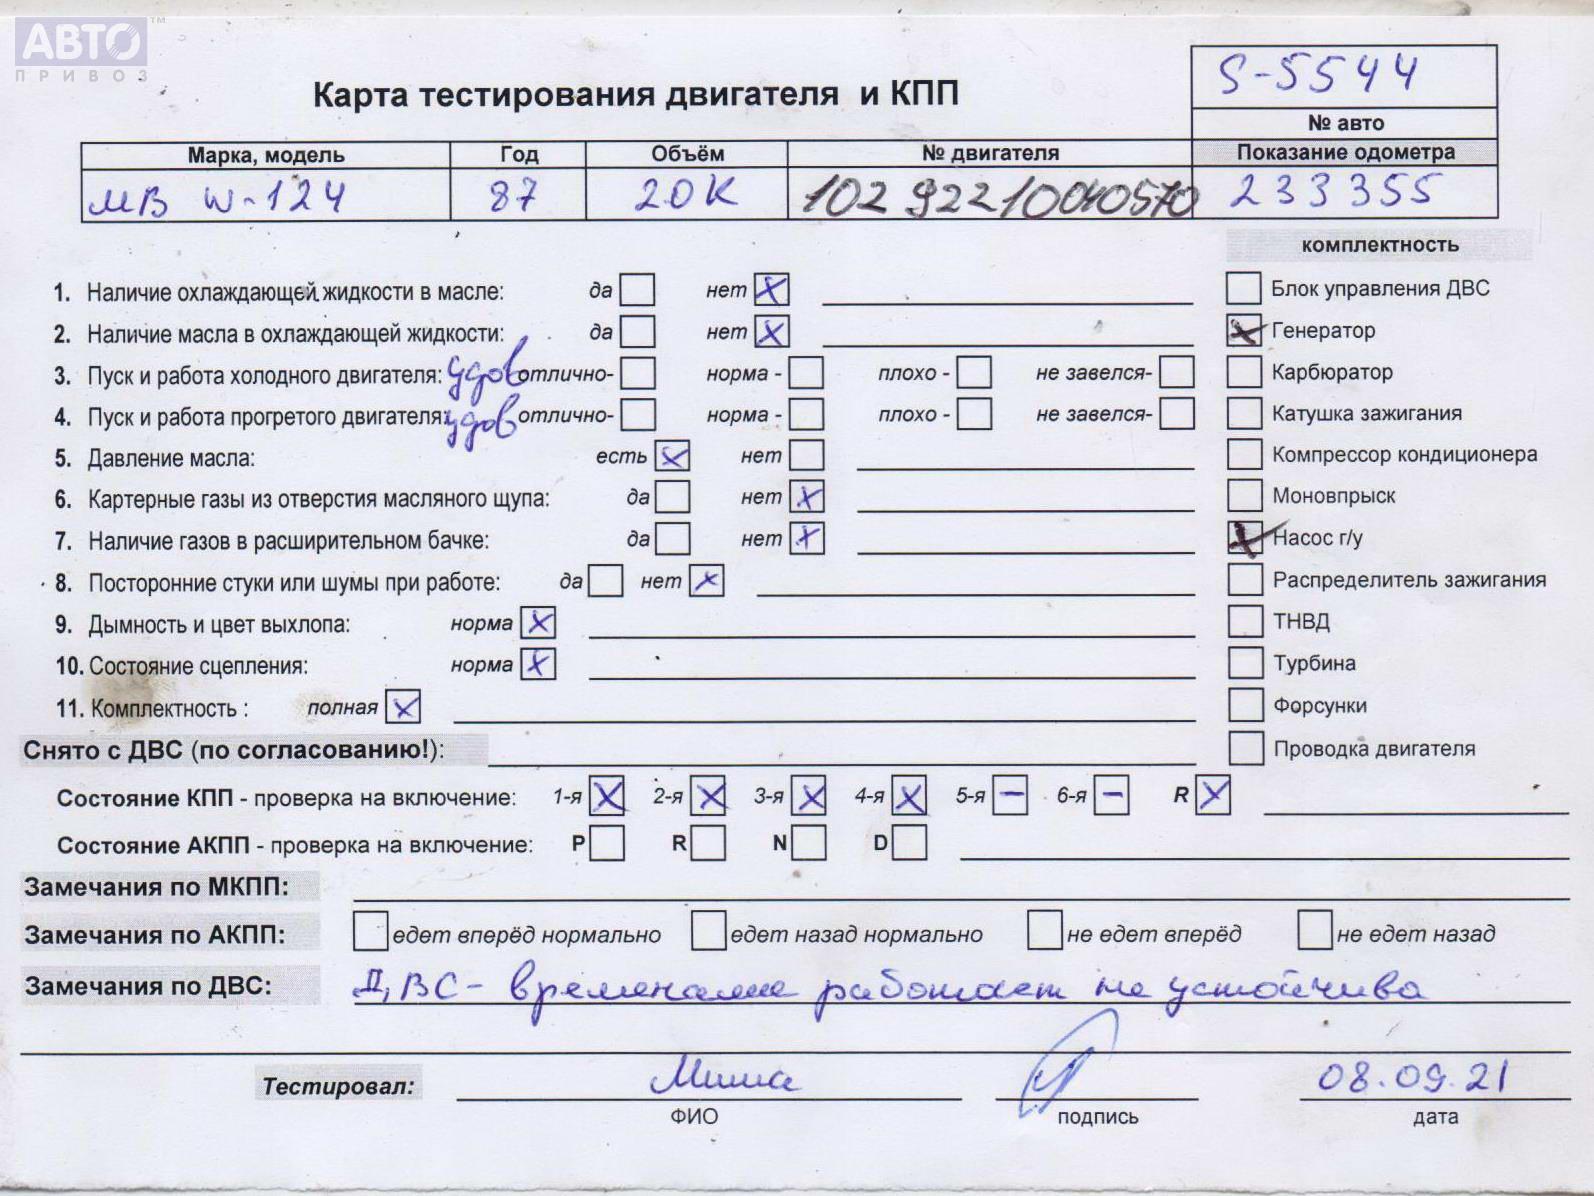 АВТО ™
ПРИВОЗ
S-5544
Карта тестирования двигателя и КПП
№ авто
Марка, модель Год Объём № двигателя Показание одометра
МВ W-124 87 2.0К 102 92210040570 233355
комплектность
1. Наличие охлаждающей жидкости в масле: да нет X Блок управления ДВС
2. Наличие масла в охлаждающей жидкости: да нет X X Генератор
3. Пуск и работа холодного двигателя: удов отлично- норма - плохо - не завелся- Карбюратор
4. Пуск и работа прогретого двигателя: удов отлично- норма - плохо - не завелся- Катушка зажигания
5. Давление масла: есть X нет Компрессор кондиционера
6. Картерные газы из отверстия масляного щупа: да нет X Моновпрыск
7. Наличие газов в расширительном бачке: да нет X X Насос г/у
8. Посторонние стуки или шумы при работе: да нет X Распределитель зажигания
9. Дымность и цвет выхлопа: норма X ТНВД
10. Состояние сцепления: норма X Турбина
11. Комплектность : полная X Форсунки
Снято с ДВС (по согласованию!): Проводка двигателя
Состояние КПП - проверка на включение: 1-я X 2-я X 3-я X 4-я X 5-я – 6-я – R X
Состояние АКПП - проверка на включение: P R N D
Замечания по МКПП:
Замечания по АКПП: едет вперёд нормально едет назад нормально не едет вперёд не едет назад
Замечания по ДВС: ДВС - временами работает не устойчива
Тестировал: Миша 08.09.21
ФИО подпись дата